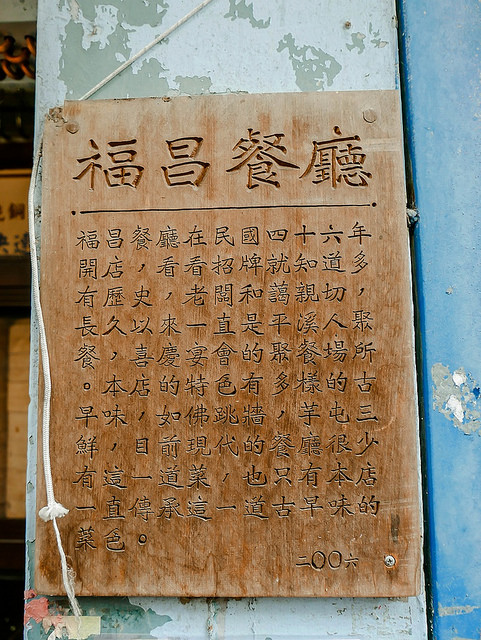 福昌餐廳
福昌餐廳在民國四十六年
開店，看看招牌就知道多
有歷史，老闆和藹親切，
長久以來一直是平溪人聚
餐、喜慶宴會的聚餐場所
。本店的特色有多樣的古
早味，如佛跳牆，芋頭三
鮮，目前現代的餐廳很少
有這一道菜，也只有本店
一直傳承這一道古早味的
菜色。
二〇〇六